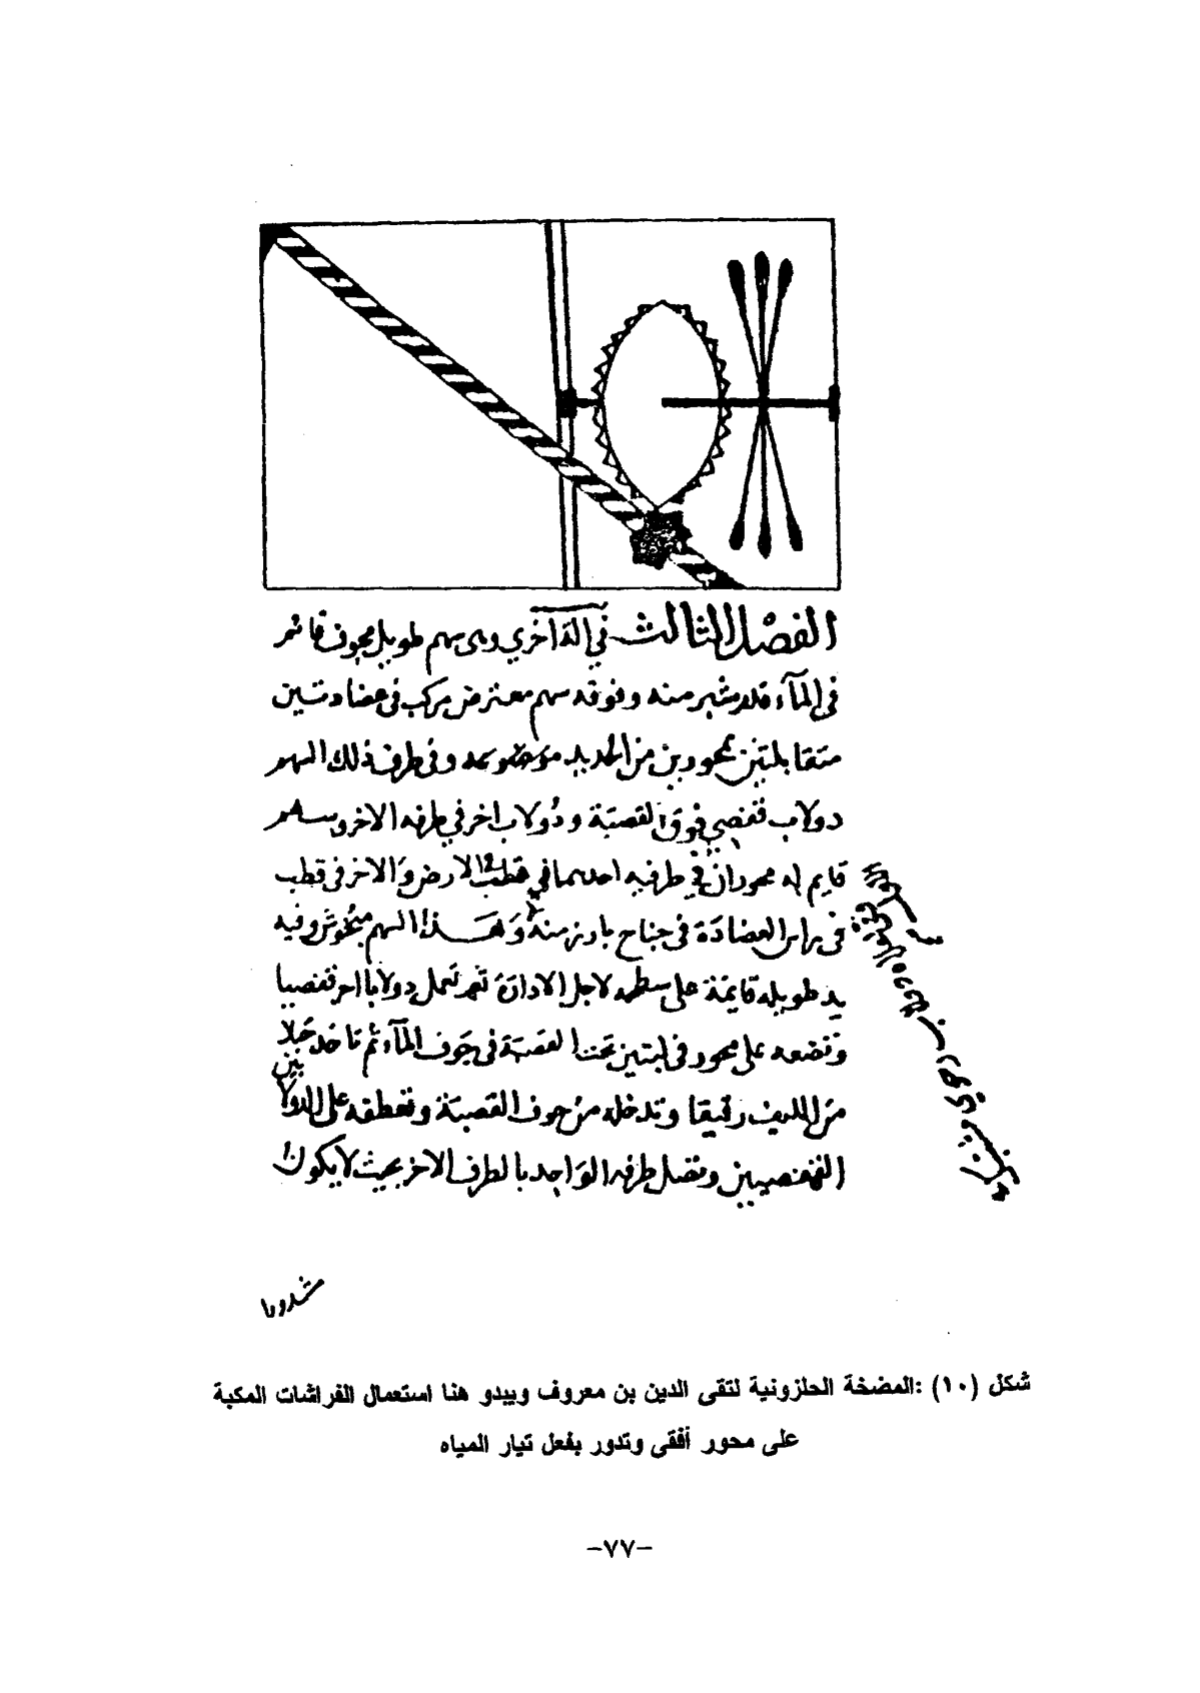 الفصل الثالث في الة اخري وهى سهم طويل مجوف قائم
في المآء قدر شبر منه وفوقه سهم معترض مركب فى عضادتين
متقابلتين بمحورين من الحديد وفى طرف ذلك السهم
دولاب قفصي فوق القصبة ودولاب اخر في طرفه الاخر وسهم
قايم له محوران في طرفيه احدهما في قطب الارض والاخر فى قطب
فى راس العضادة فى جناح بارز منه وهذا السهم وفيه
يد طويله قايمة على سطحه لاجل الادارة ثم تعمل دولابا اخر قفصيا
وتضعه على محور فى تحت القصبة فى جوف المآء ثم تاخذ حبلا
من الليف رقيقا وتدخله من جوف القصبة وتعطفه على الدولابين
القفصيين وتصل طرفه الواحد بالطرف الاخر بحيث لا يكون
شكل (١٠) :المضخة الحلزونية لتقى الدين بن معروف ويبدو هنا استعمال الفراشات المكبة
على محور أفقى وتدور بفعل تيار المياه
-٧٧-